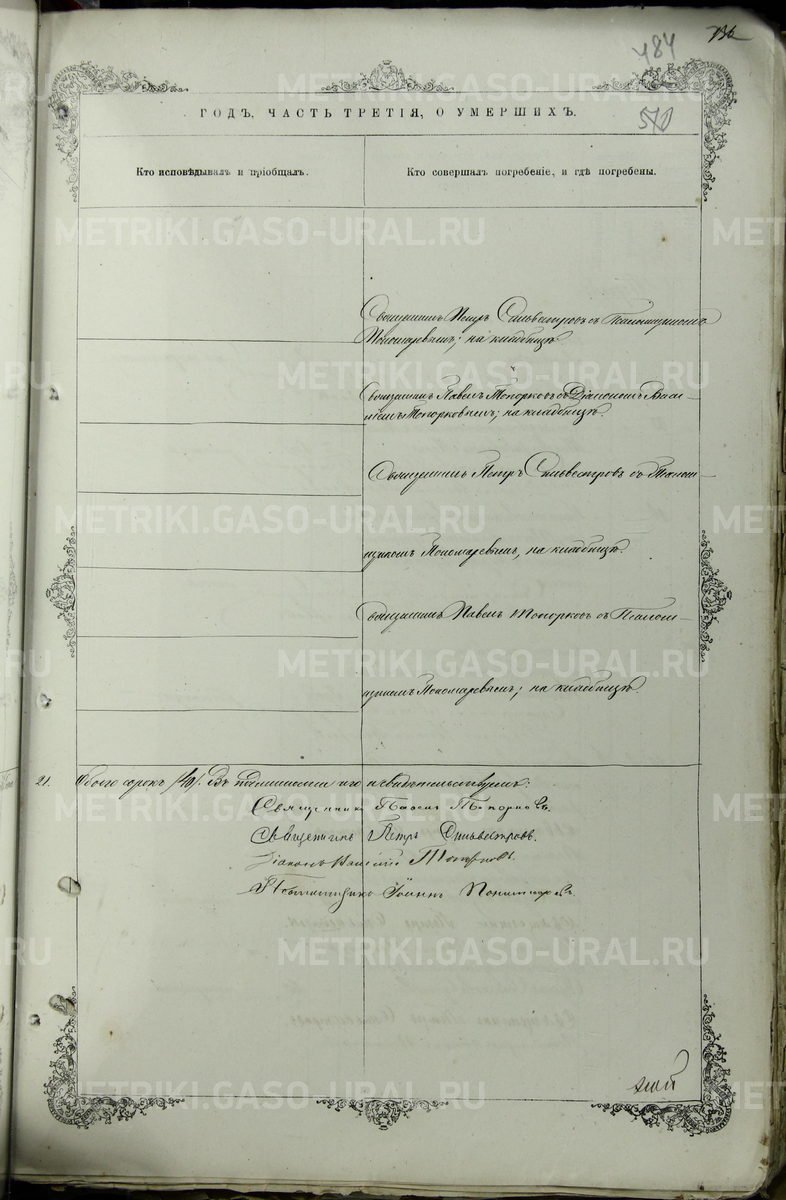 736
484
510
ГОДЪ, ЧАСТЬ ТРЕТІЯ, О УМЕРШИХЪ.
Кто исповѣдывалъ и пріобщалъ.
Кто совершалъ погребеніе, и гдѣ погребены.
Священникъ Петръ Сильвестровъ съ Псаломщикомъ
Пономаревымъ; на кладбищѣ.
Священникъ Павелъ Топорковъ съ Діакономъ Васи-
ліемъ Топорковымъ; на кладбищѣ.
Священникъ Петръ Сильвестровъ съ Псалом-
щикомъ Пономаревымъ, на кладбищѣ.
Священникъ Павелъ Топорковъ съ Псалом-
щикомъ Пономаревымъ; на кладбищѣ.
21. Обоего сорокъ /40/. Въ
Священникъ Павелъ Топорковъ.
Священникъ Петръ Сильвестровъ.
Діаконъ Василій Топорковъ.
Псаломщикъ Іоаннъ Пономаревъ
METRIKI.GASO-URAL.RU